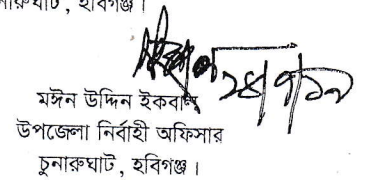 চুনারুঘাট, হবিগঞ্জ।
মঈন উদ্দিন ইকবাল
উপজেলা নির্বাহী অফিসার
চুনারুঘাট, হবিগঞ্জ।